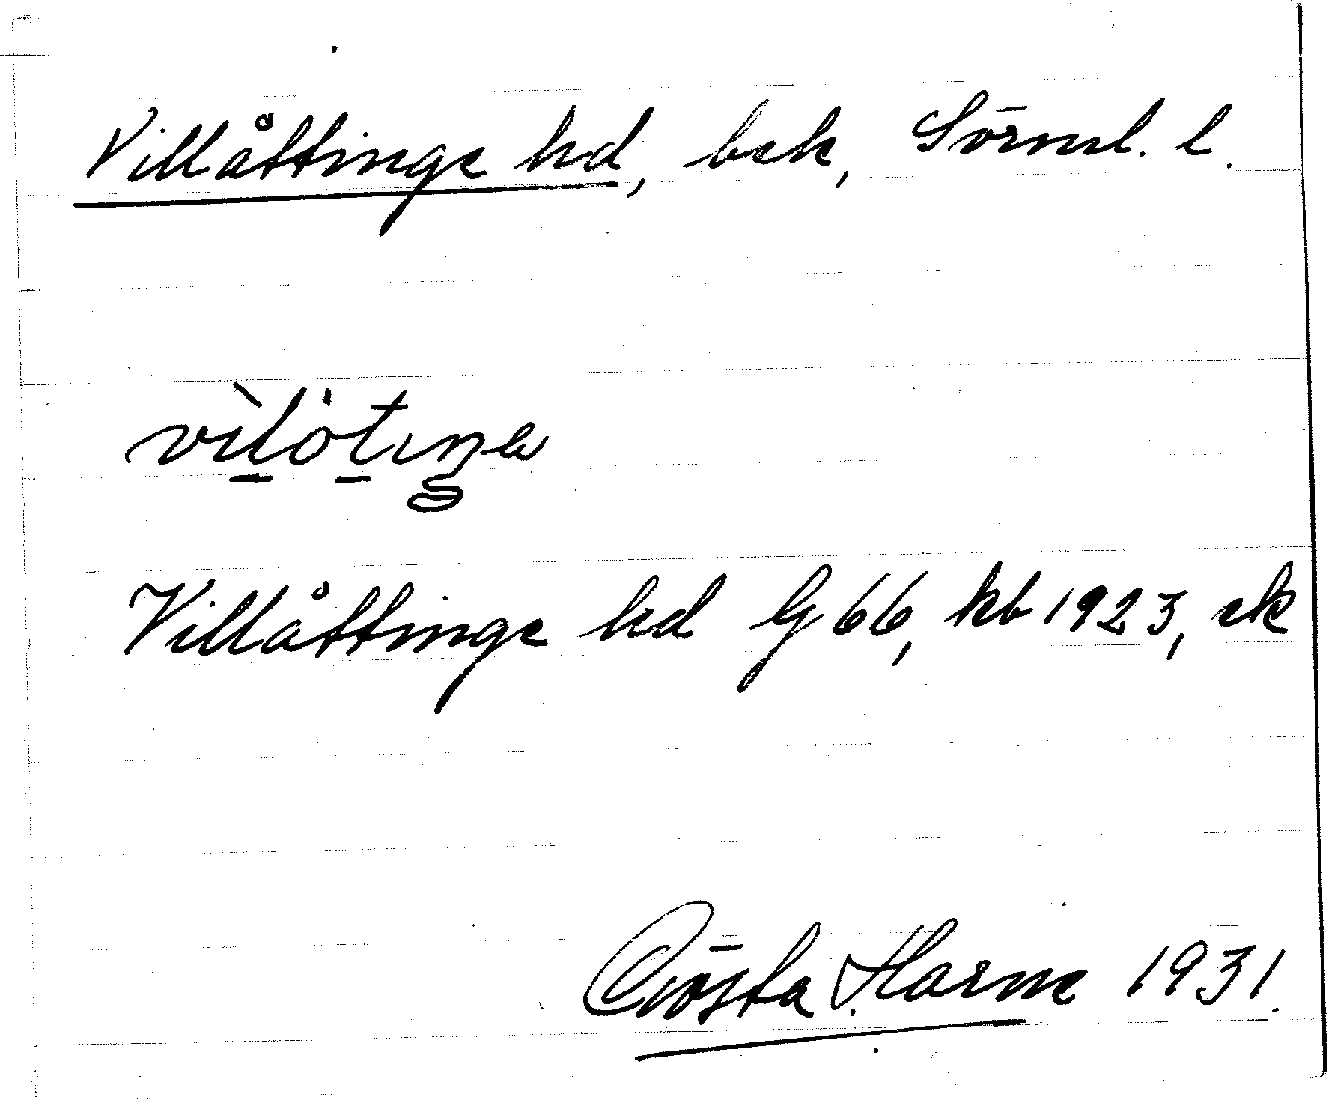 Villåttinge hd, bek, Sörml. l.
vìlȯtıŋə
Villåttinge hd G 66, kb 1923, ek
Gösta Harne 1931.